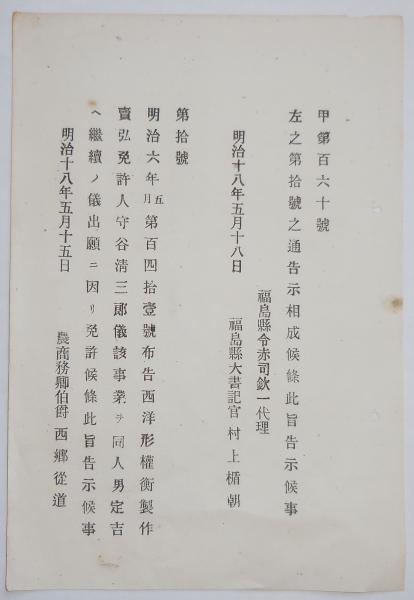 甲第百六十號
左之第拾號之通告示相成候條此旨告示候事
福島縣令赤司欽一代理
明治十八年五月十八日
福島縣大書記官村上楯朝
第拾號
明治六年五月第百四拾壹號布告西洋形權衡製作
賣弘免許人守谷清三郎儀該事業ヲ同人男定吉
ヘ繼續ノ儀出願ニ因リ免許候條此旨告示候事
明治十八年五月十五日
農商務卿伯爵西鄉從道